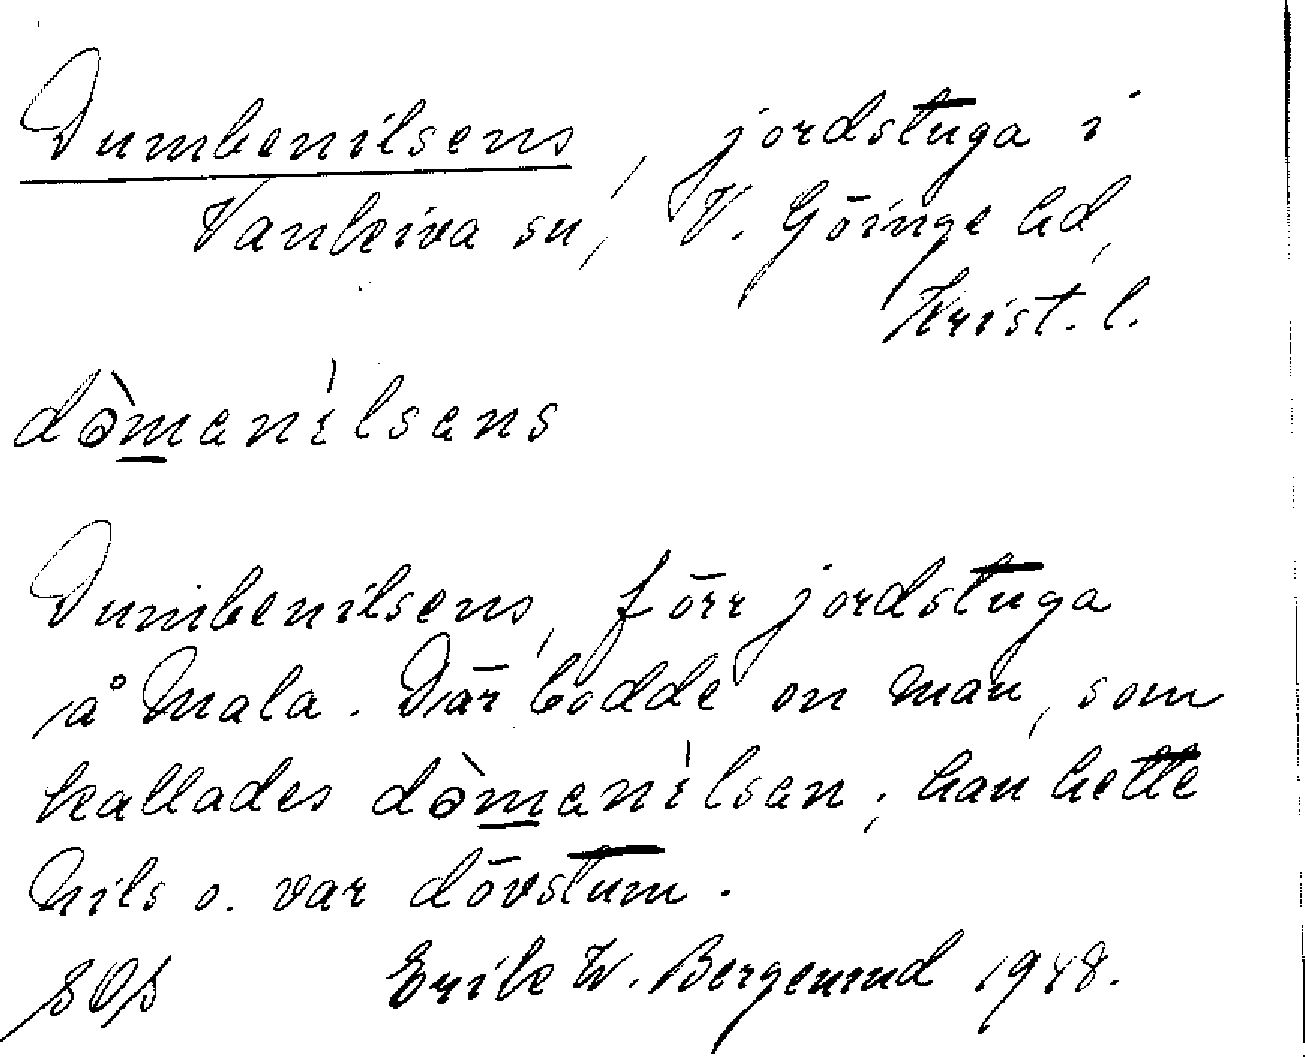 Dumbenilsens, jordstuga i
Vankiva sn, V. Göinge hd,
Krist. l.
dòmanílsans
Dumbenilsens, förr jordstuga
å Mala. Där bodde en man, som
kallades dòmanílsan; han hette
Nils o. var dövstum.
SOS Erik W. Bergenund 1948.